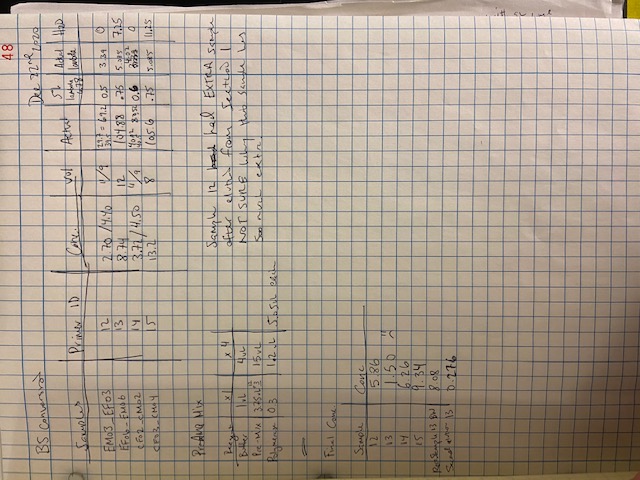 48
BS Conversion
Dec 22nd 2020
Samples Primer ID Conc. Vol Actual 5% lambda Actual lambda H2O
EM03_EF03 12 2.70/4.40 11/9 29.7 = 69.2 0.5 3.39 0
EF06_EM06 13 8.74 12 104.88 .75 5.085 7.25
CF02_CM02 14 3.72/4.50 11/9 0.6 0
CF03_CM04 15 13.2 8 105.6 .75 5.085 11.25
PreAmp Mix
Reagent x1 x4
Buffer 1uL 4uL
Pre-Mix 3.75uL 15uL
Polymerase 0.3 1.2uL 5.05uL each
Sample 12 had EXTRA sample
after elution from Section 1
NOT SURE why this sample has
soo much extra.
Final Conc.
Sample Conc
12 5.86
13 1.50
14 6.26
15 9.34
Sample 13 8.08
13 0.276